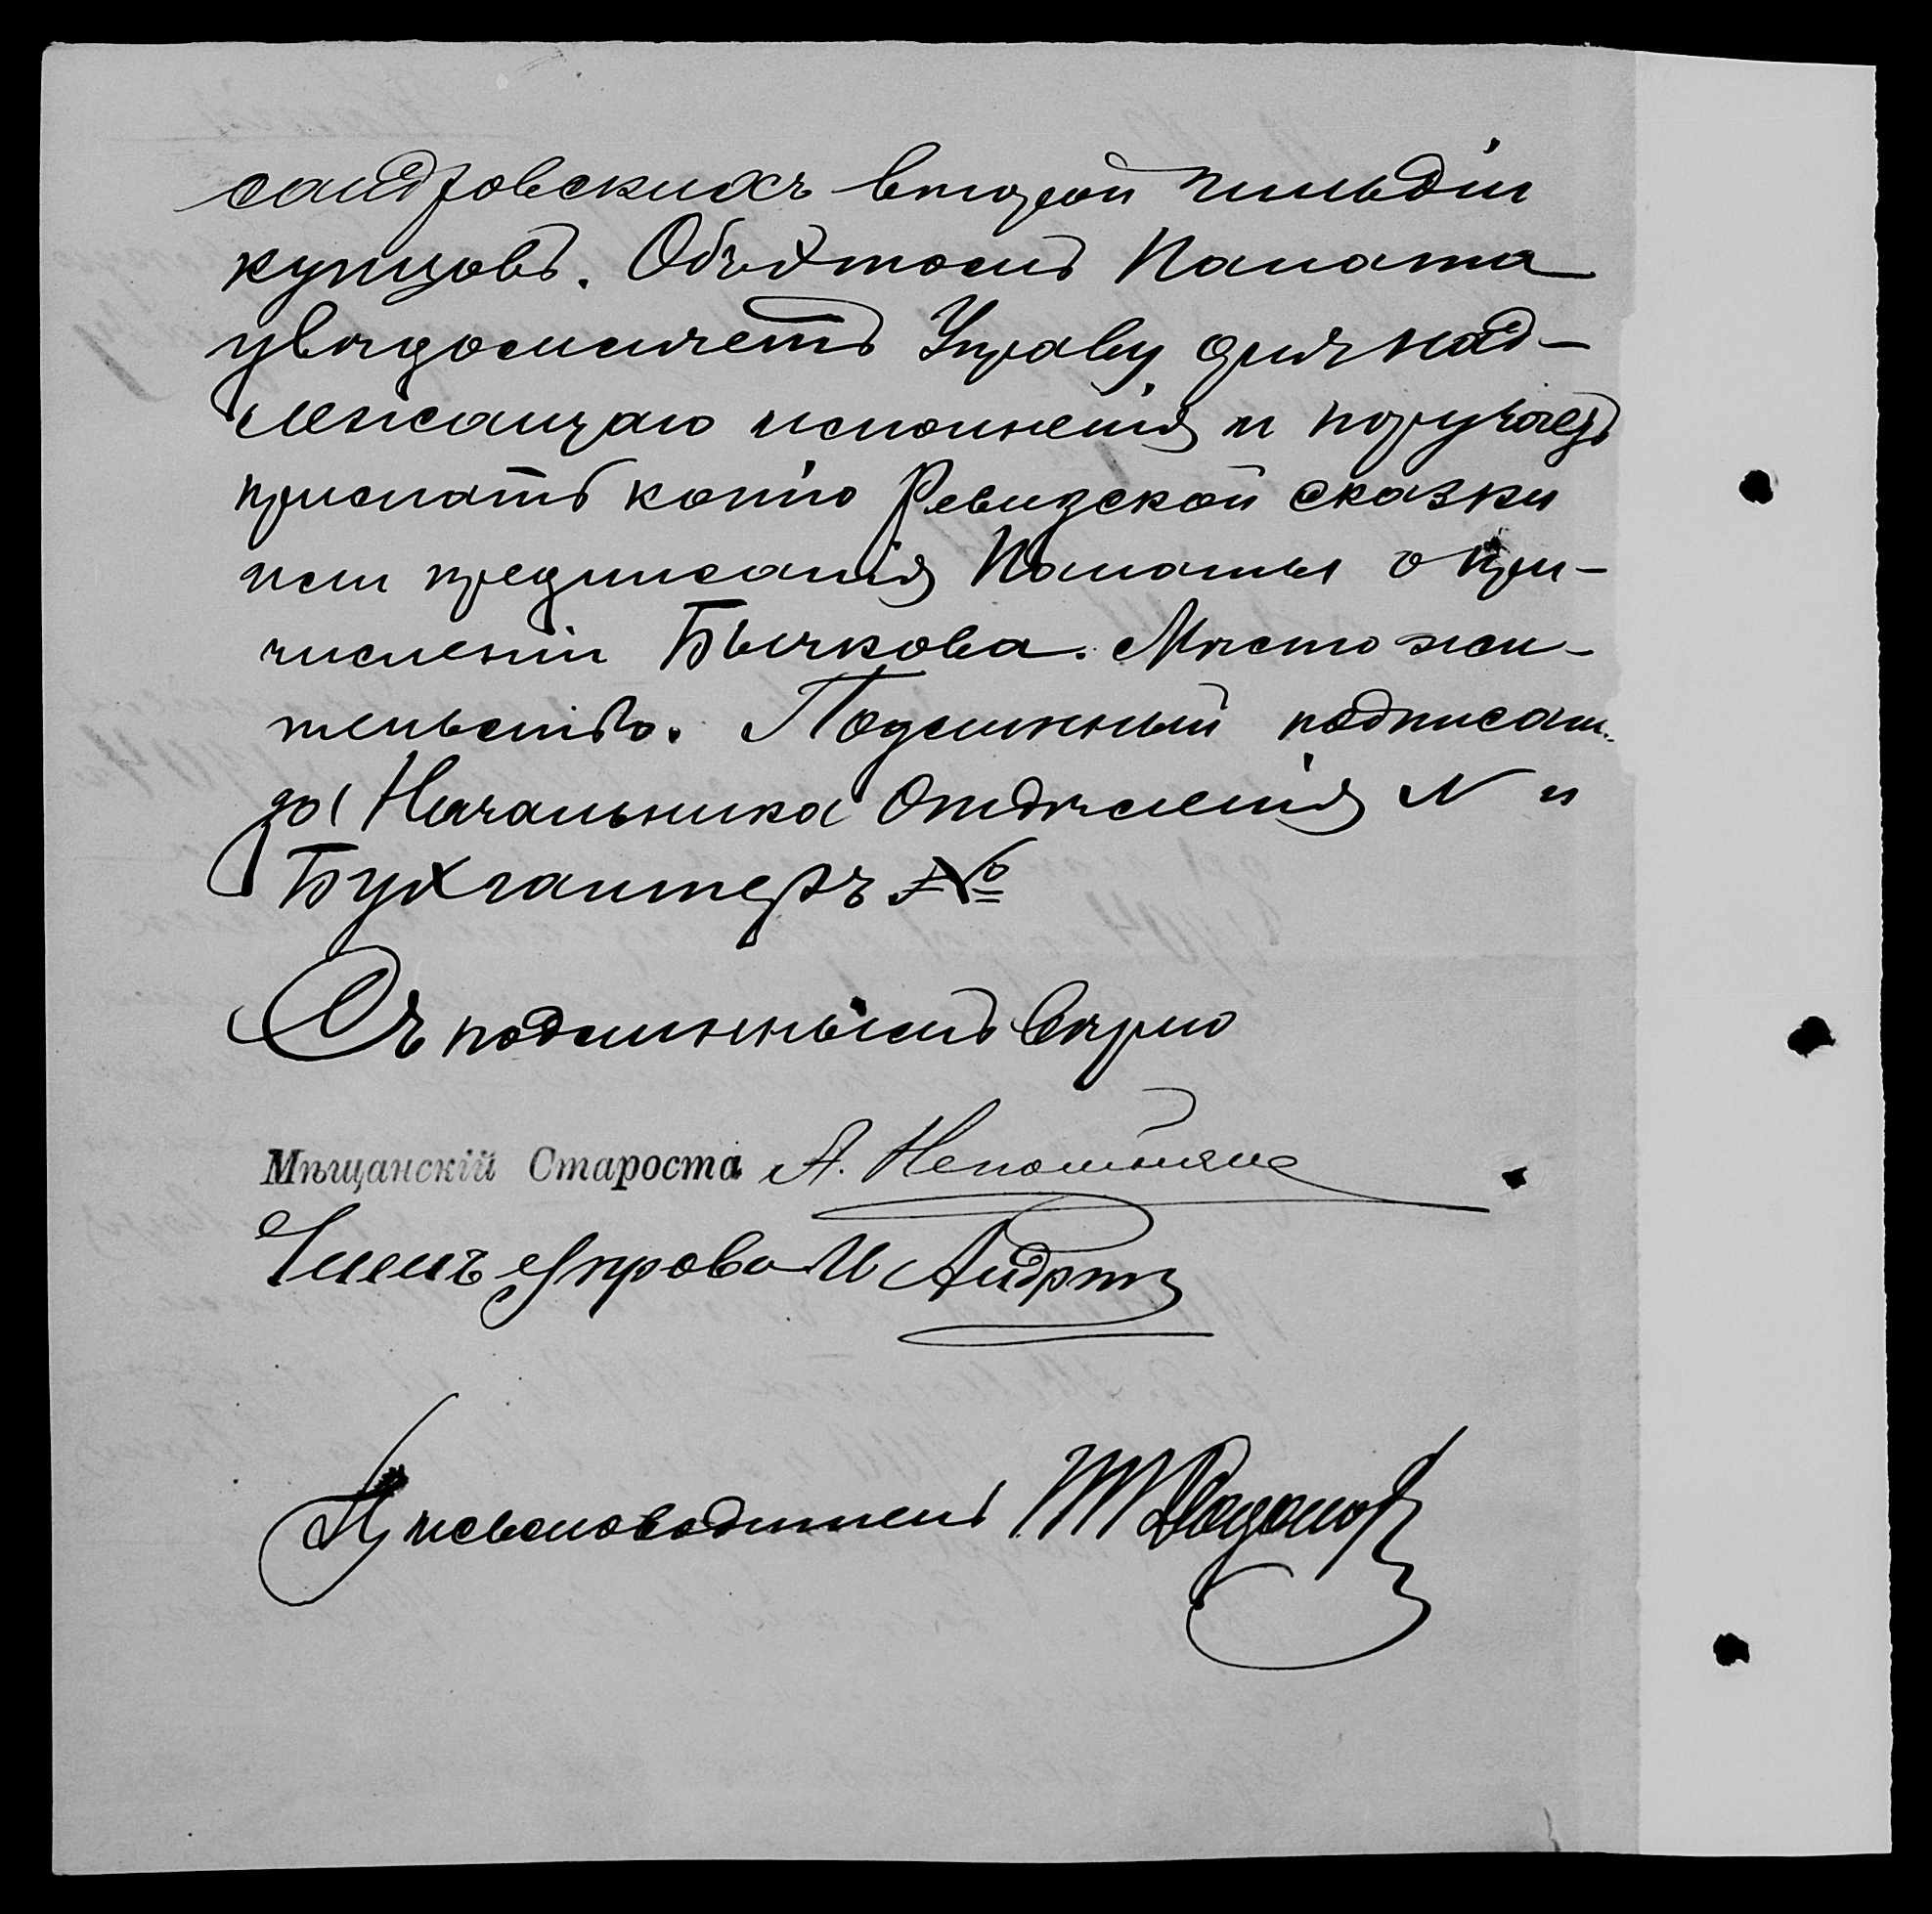 сандровскихъ второй гильдіи
купцовъ. Объ этомъ Палата
увѣдомляетъ Управу для над-
лежащаго исполненія и поручаетъ
прислать копію Ревизской сказки
или предписанія Палаты о при-
численіи Бычкова. Мѣсто жи-
тельство. Подлинный подписали:
за Начальника Отдѣленія N и
Бухгалтеръ №
Съ подлиннымъ вѣрно
Мѣщанскій Староста А.
Членъ Управы И
Письмоводитель